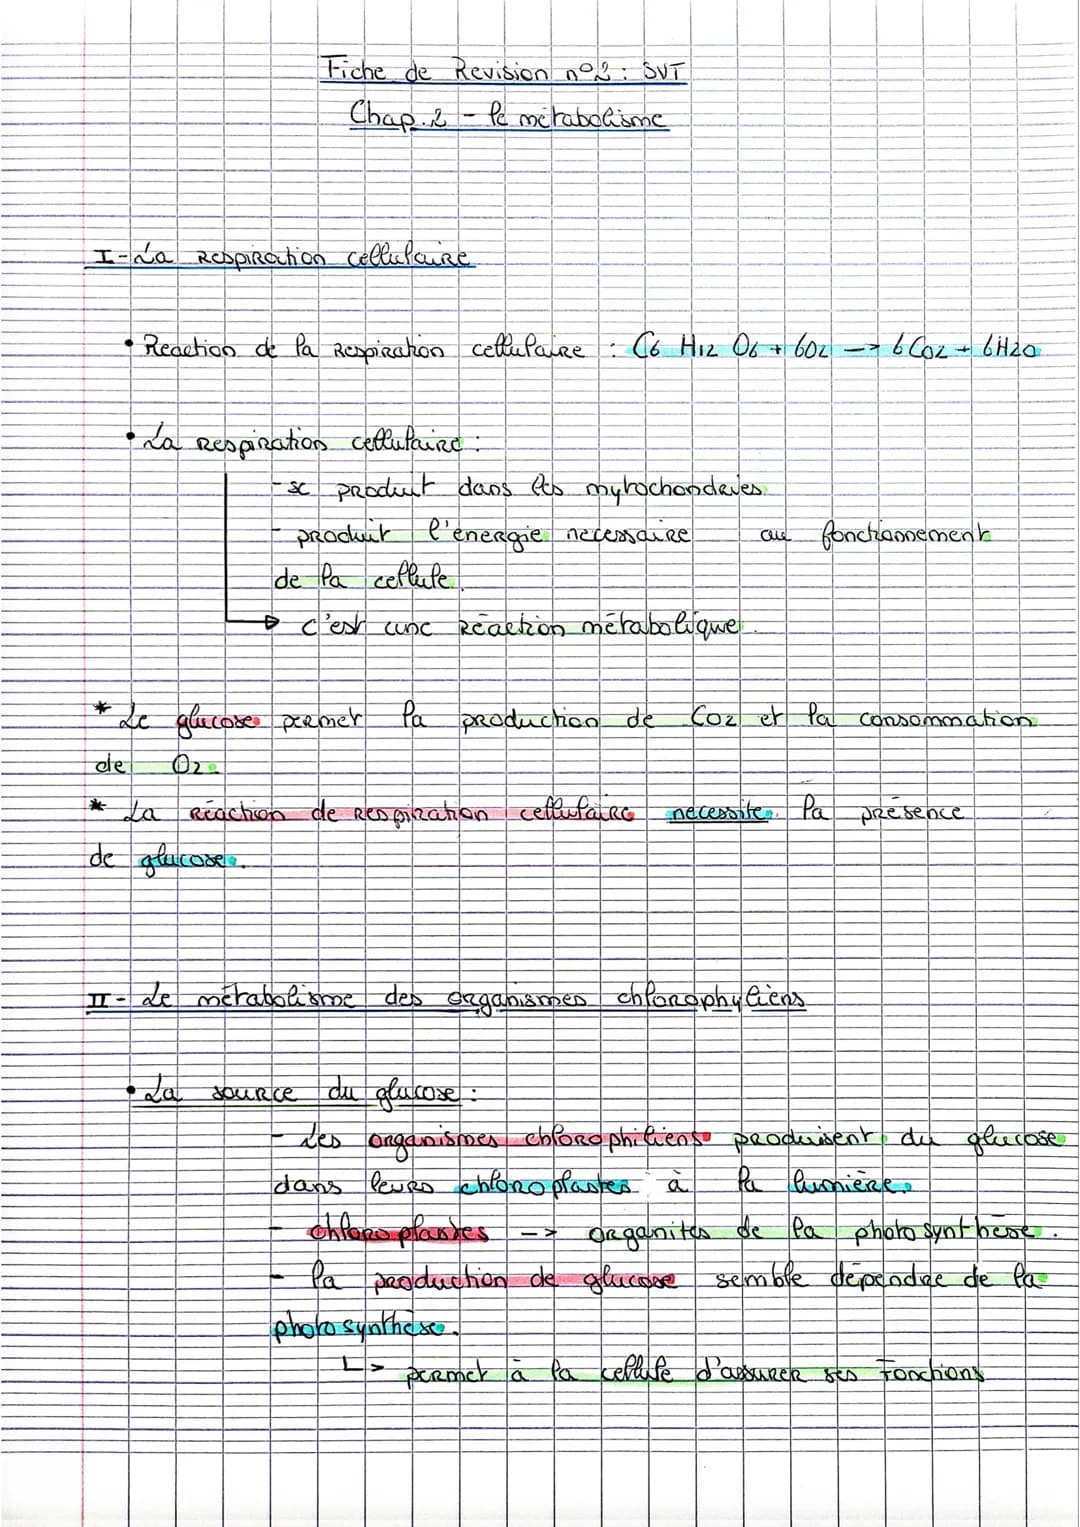 Fiche de Revision n°2 : SVT
Chap.2 - le métabolisme
I - La Respiration cellulaire
• Reaction de la Respiration cellulaire : C6 H12 O6 + 6O2 —> 6CO2 + 6H2O
• La respiration cellulaire :
- se produit dans les mytochondries
- produit l'énergie necessaire au fonctionnement
de la cellule.
c'est une réaction métabolique.
* Le glucose permet la production de CO2 et la consommation
de O2.
* La réaction de respiration cellulaire necessite la présence
de glucose.
II - Le métabolisme des organismes chlorophyliens
• La source du glucose :
- Les organismes chlorophiliens produisent du glucose
dans leurs chloroplastes à la lumière.
- chloroplastes --> organites de la photosynthèse.
- la production de glucose semble dépendre de la
photosynthèse.
L> permet à la cellule d'assurer ses fonctions